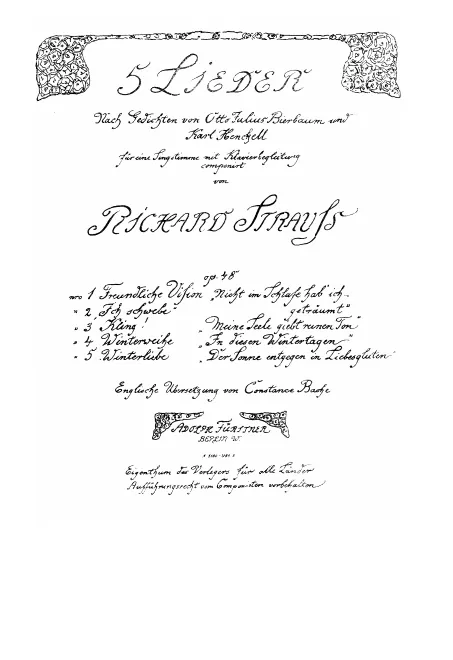 5 LIEDER
Nach Gedichten von Otto Julius Bierbaum und
Karl Henckell
für eine Singstimme mit Klavierbegleitung
componirt
von
RICHARD STRAUSS
op. 48
No 1 Freundliche Vision „Nicht im Schlafe hab' ich
geträumt"
" 2 „Ich schwebe"
" 3 Kling! „Meine Seele giebt reinen Ton"
" 4 Winterweihe „In diesen Wintertagen"
" 5 Winterliebe „Der Sonne entgegen in Liebesgluten
Englische Übersetzung von Constance Bache
ADOLPH FÜRSTNER
BERLIN W.
Eigenthum des Verlegers für alle Länder
Aufführungsrecht vom Componisten vorbehalten